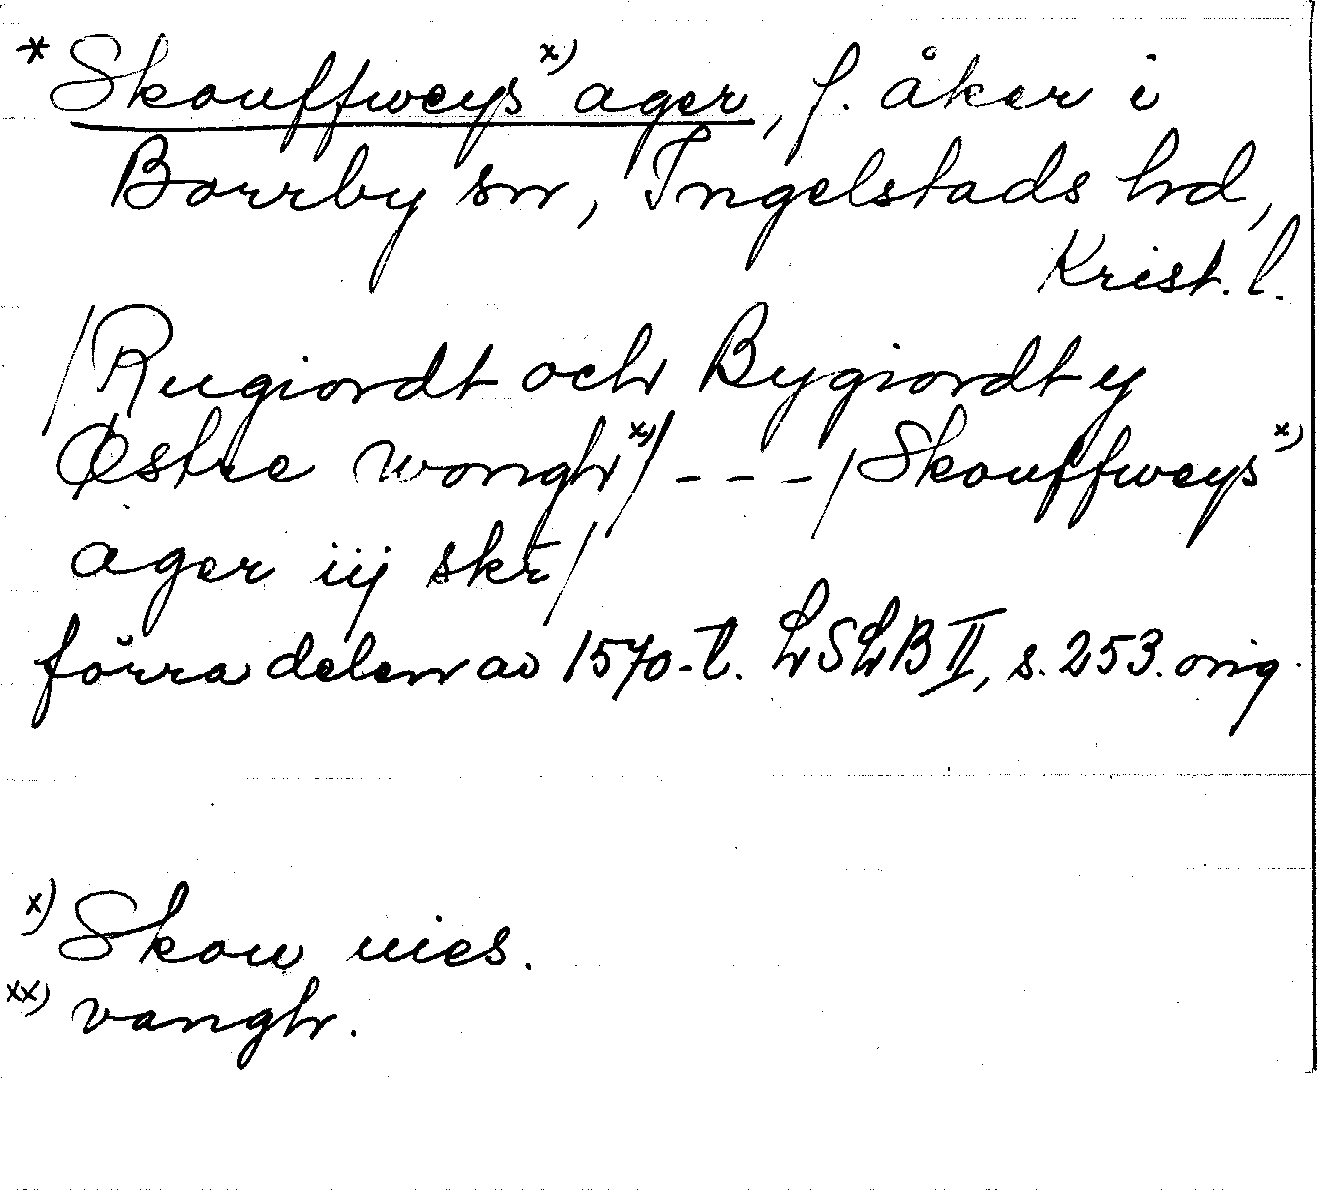 * Skouffweys x) ager, f. åker i
Borrby sn, Ingelstads hd,
Krist. l.
/Rugiordt och Bygiordt y
Østre wongh x)/ - - - /Skouffweys x)
ager iij skr̄/
förra delen av 1570-t. LSLB II, s. 253. orig.
x) Skow uies.
xx) vangh.